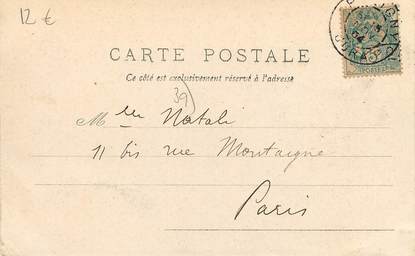 12 €
CARTE POSTALE
Ce côté est exclusivement réservé à l'adresse
39
Mlle Natali
11 bis rue Montaigne
Paris